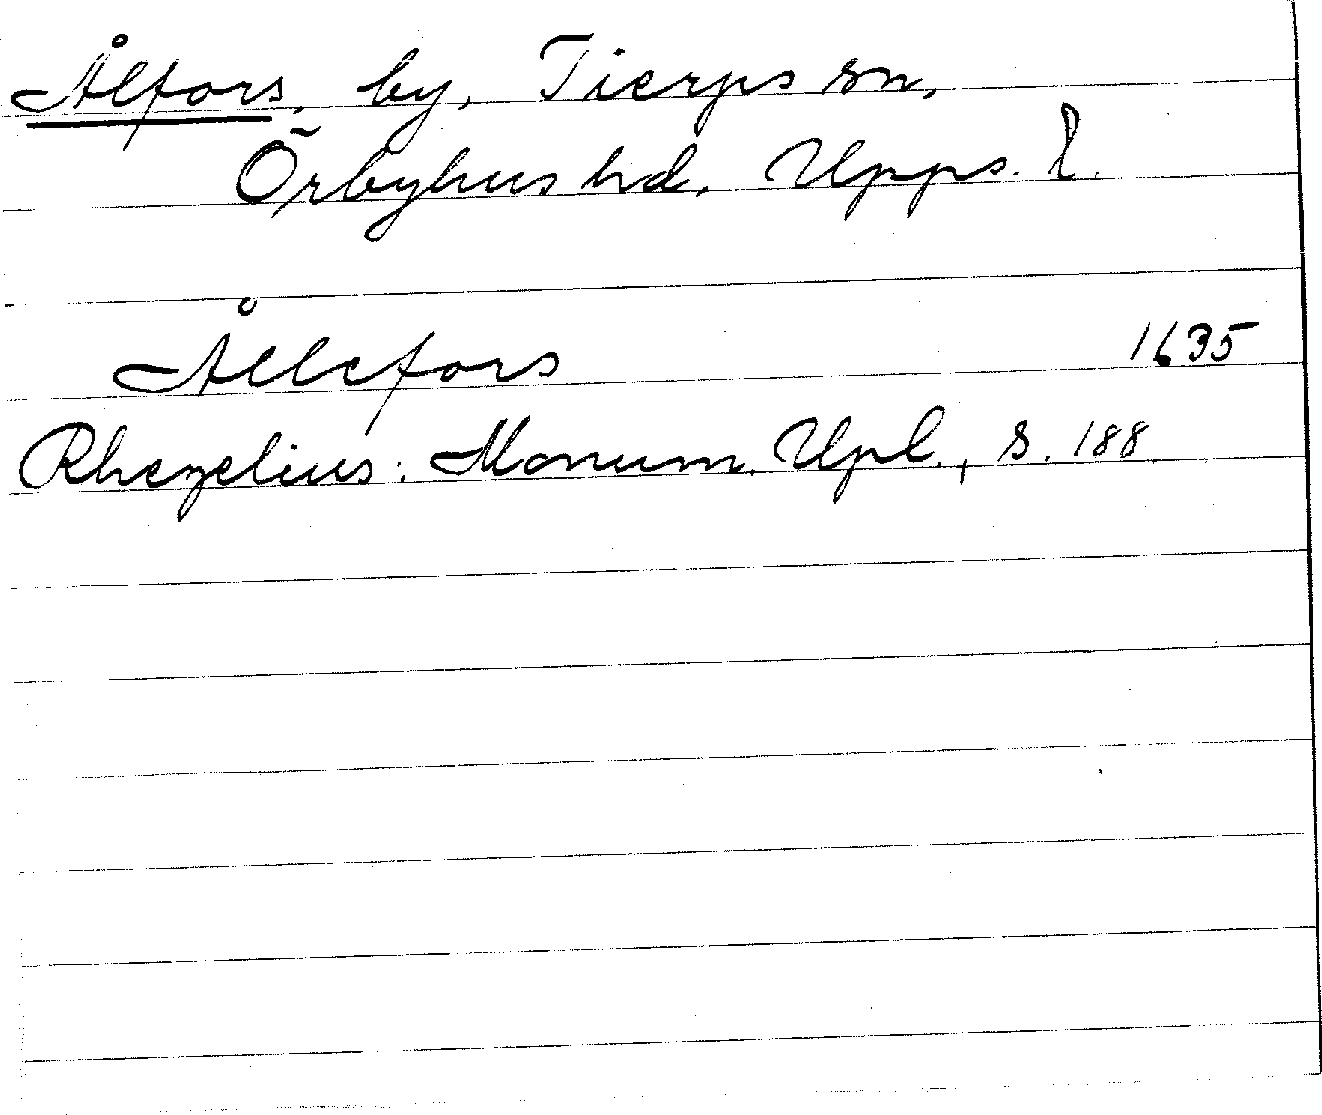 Ålfors, by, Tierps sn,
Örbyhus hd, Upps. l.
Ållefors 1635
Rhezelius: Monum. Upl., s. 188